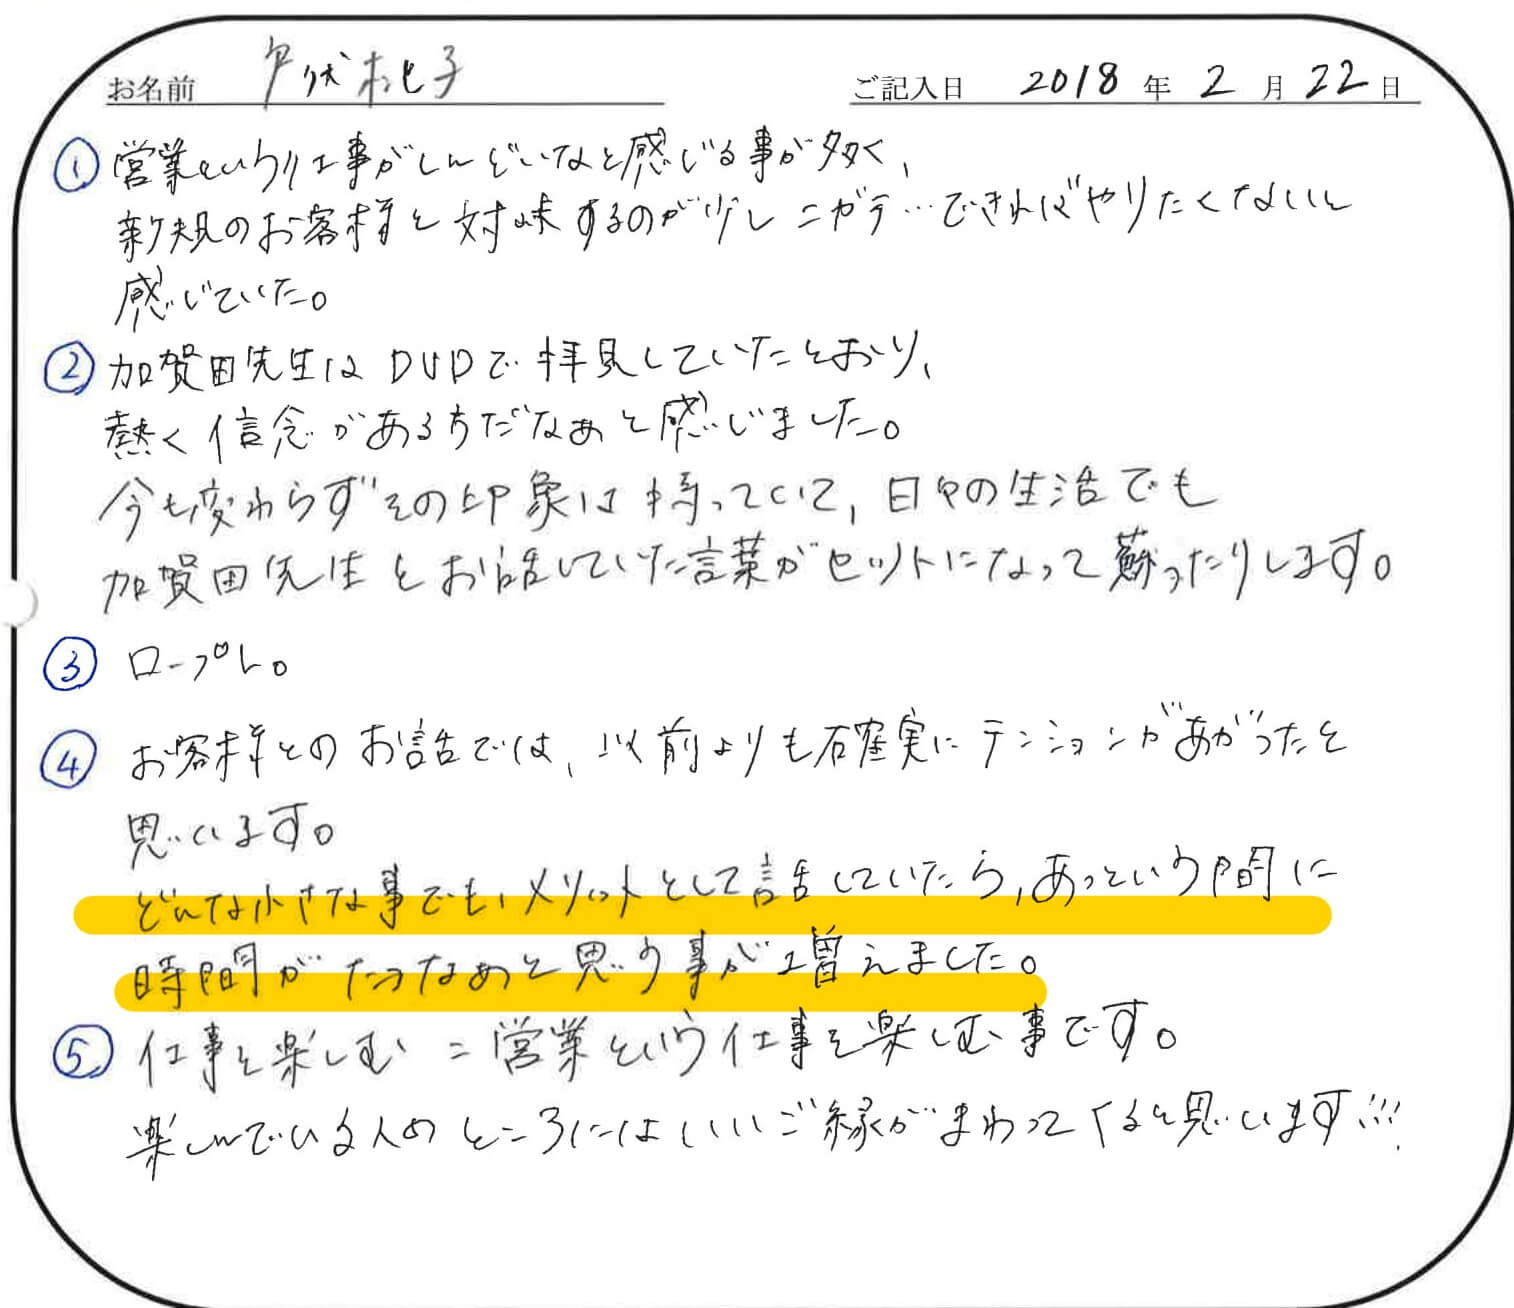 お名前 戸伏 子 ご記入日 2018 年 2 月 22 日
① 営業という仕事がしんどいなと感じる事が多く、
新規のお客様と対峙するのが少しニガテ…できればやりたくないと
感じていた。
② 加賀田先生はDVDで拝見していたとおり、
熱く信念がある方だなぁと感じました。
今も変わらずその印象は持っていて、日々の生活でも
加賀田先生とお話していた言葉がセットになって蘇ったりします。
③ ロープレ。
④ お客様とのお話では、以前よりも確実にテンションがあがったと
思います。
どんな小さな事でも、メリットとして話していたら、あっという間に
時間がたつなぁと思う事が増えました。
⑤ 仕事を楽しむ=営業という仕事を楽しむ事です。
楽しんでいる人のところにはいいご縁がまわってくると思います!!!